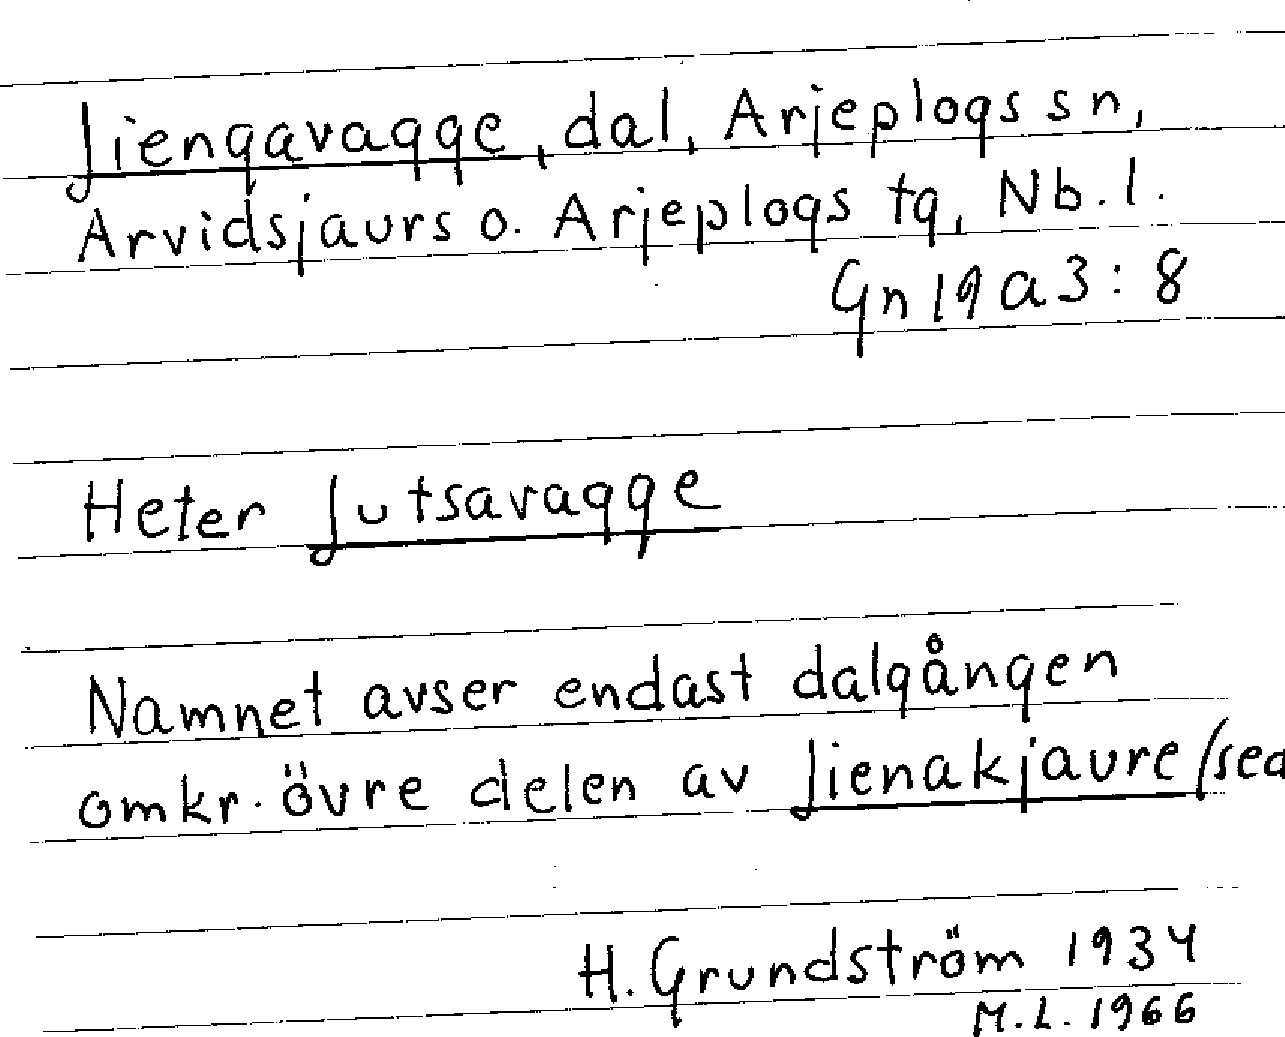 Jiengavagge, dal, Arjeplogs sn,
Arvidsjaurs o. Arjeplogs tg, Nb. l.
Gn 19 a 3 : 8
Heter Jutsavagge
Namnet avser endast dalgången
omkr. övre delen av Jienakjaure (sed
H. Grundström 1934
M. L. 1966